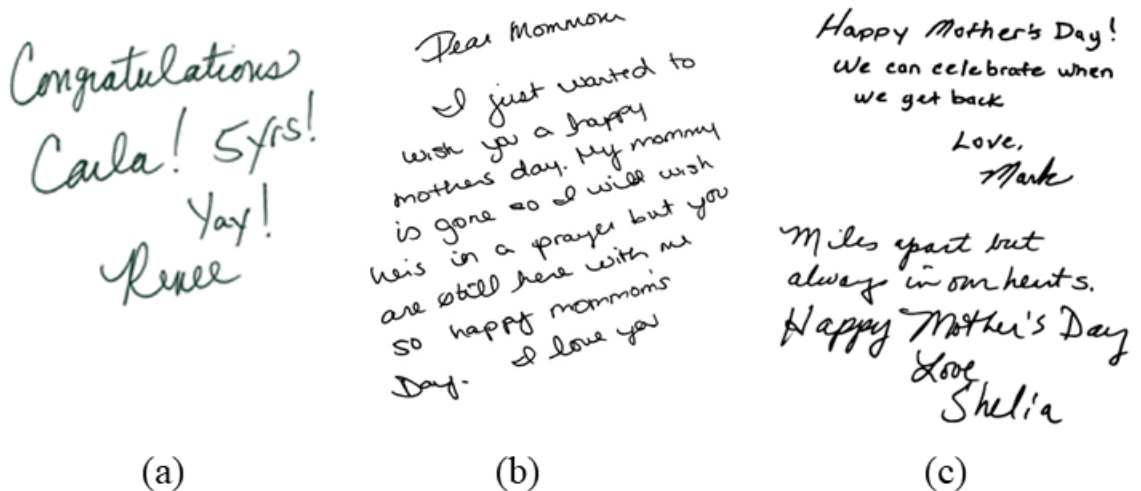 Congratulations
Carla! 5yrs!
Yay!
Renee
(a)
Dear Mommom
I just wanted to
wish you a happy
mothers day. My mommy
is gone so I will wish
heis in a prayer but you
are still here with me
so happy mommom's
Day. I love you
(b)
Happy Mother's Day!
We can celebrate when
we get back
Love,
Mark
Miles apart but
always in our hearts.
Happy Mother's Day
Love
Shelia
(c)